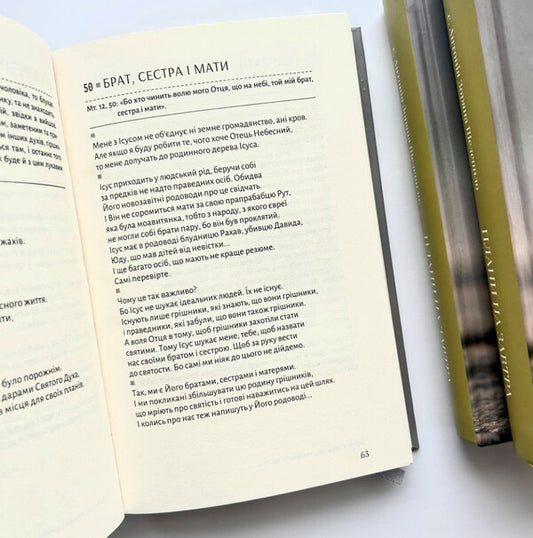 чоловіка, то блукає
нку, та не знаходить
ій, звідки я вийшов
, заметеним та при
м інших духів, гірших
ься там, і останнє того
к буде й з цим лукавим
жахів.
сного життя.
ти,
було порожнім.
дарами Святого Духа,
в місця для своїх планів.
50 = БРАТ, СЕСТРА І МАТИ
Мт. 12, 50: «Бо хто чинить волю мого Отця, що на небі, той мій брат,
сестра і мати».
Мене з Ісусом не об'єднує ні земне громадянство, ані кров.
Але якщо я буду робити те, чого хоче Отець Небесний,
то мене долучать до родинного дерева Ісуса.
Ісус приходить у людський рід, беручи собі
за предків не надто праведних осіб. Обидва
Його новозавітні родоводи про це свідчать.
І Він не соромиться мати за свою прапрабабцю Рут,
яка була моавитянка, тобто з народу, з якого євреї
не могли собі брати пару, бо він був проклятий.
Ісус має в родоводі блудницю Рахав, убивцю Давида,
Юду, що мав дітей від невістки...
І ще багато осіб, що мають не краще резюме.
Самі перевірте.
Чому це так важливо?
Бо Ісус не шукає ідеальних людей. Їх не існує.
Існують лише грішники, які знають, що вони грішники,
і праведники, які забули, що вони також грішники.
А воля Отця в тому, щоб грішники захотіли стати
святими. Тому Ісус шукає мене, тебе, щоб назвати
нас своїми братом і сестрою. Щоб за руку вести
до святости. Бо самі ми ніяк до цього не дійдемо.
Так, ми є Його братами, сестрами і матерями.
І ми покликані збільшувати цю родину грішників,
що мріють про святість і готові наважитись на цей шлях.
І колись про нас теж напишуть у Його родоводі...
63